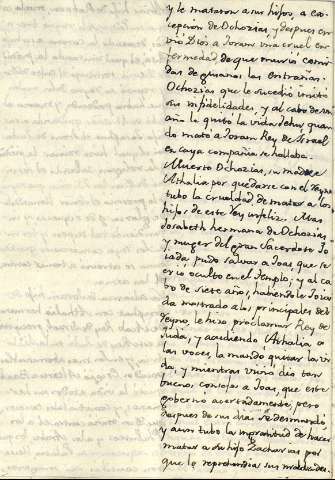 y le mataron a sus hijos, a ex-
cepción de Ochozias, y despues en-
vió Dios a Joram una cruel en-
fermedad de que murio comi-
das de gusanos las entrañas.
Ochozias que le sucedió imitó
sus infidelidades, y al cabo de un
año la quitó la vida Jehu, quan
do mató a Joram Rey de Israel
en cuya compañia se hallaba.
Muerto Ochozias, su madre
Athalia por quedarse con el Reyno
tubo la crueldad de matar a los
hijos de este Rey infeliz. Mas
Josabeth hermana de Ochozias
y muger del gran Sacerdote Jo
iada, pudo salvar a Joas, que se
crio oculto en el Templo; y al ca
bo de siete años, habiendole Joia
da mostrado a los principales del
Reyno, le hizo proclamar Rey de
Juda, y acudiendo Athalia a
las voces, la mandó quitar la vi
da, y mientras vivió dio tan
buenos consejos a Joas, que este
gobernó acertadamente, pero
despues de sus dias se desmandó
y aun tubo la ingratitud de hacer
matar a su hijo Zacharias por
que le reprehendia sus maldades.